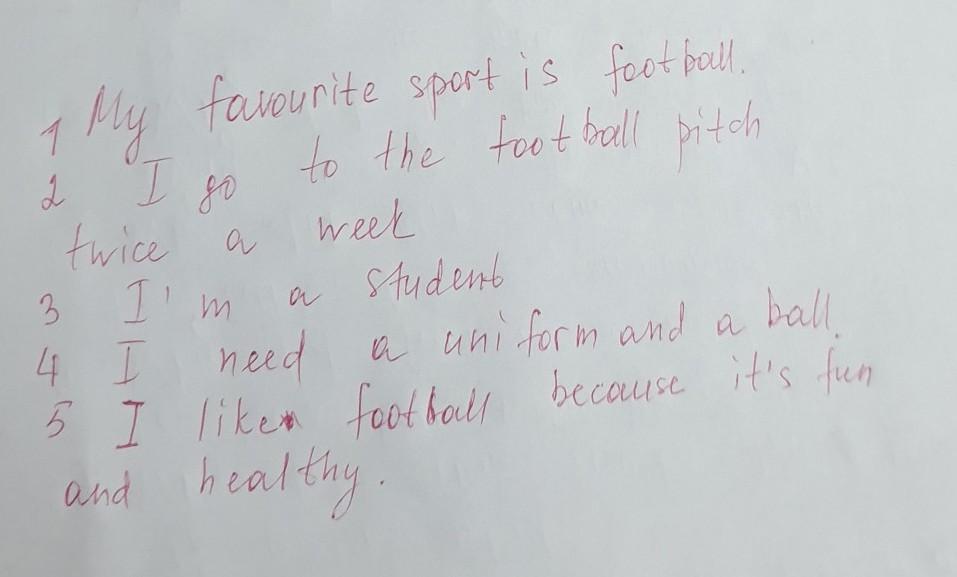 1 My favourite sport is football.
2 I go to the football pitch
twice a week
3 I'm a student
4 I need a uniform and a ball.
5 I like football because it's fun
and healthy.